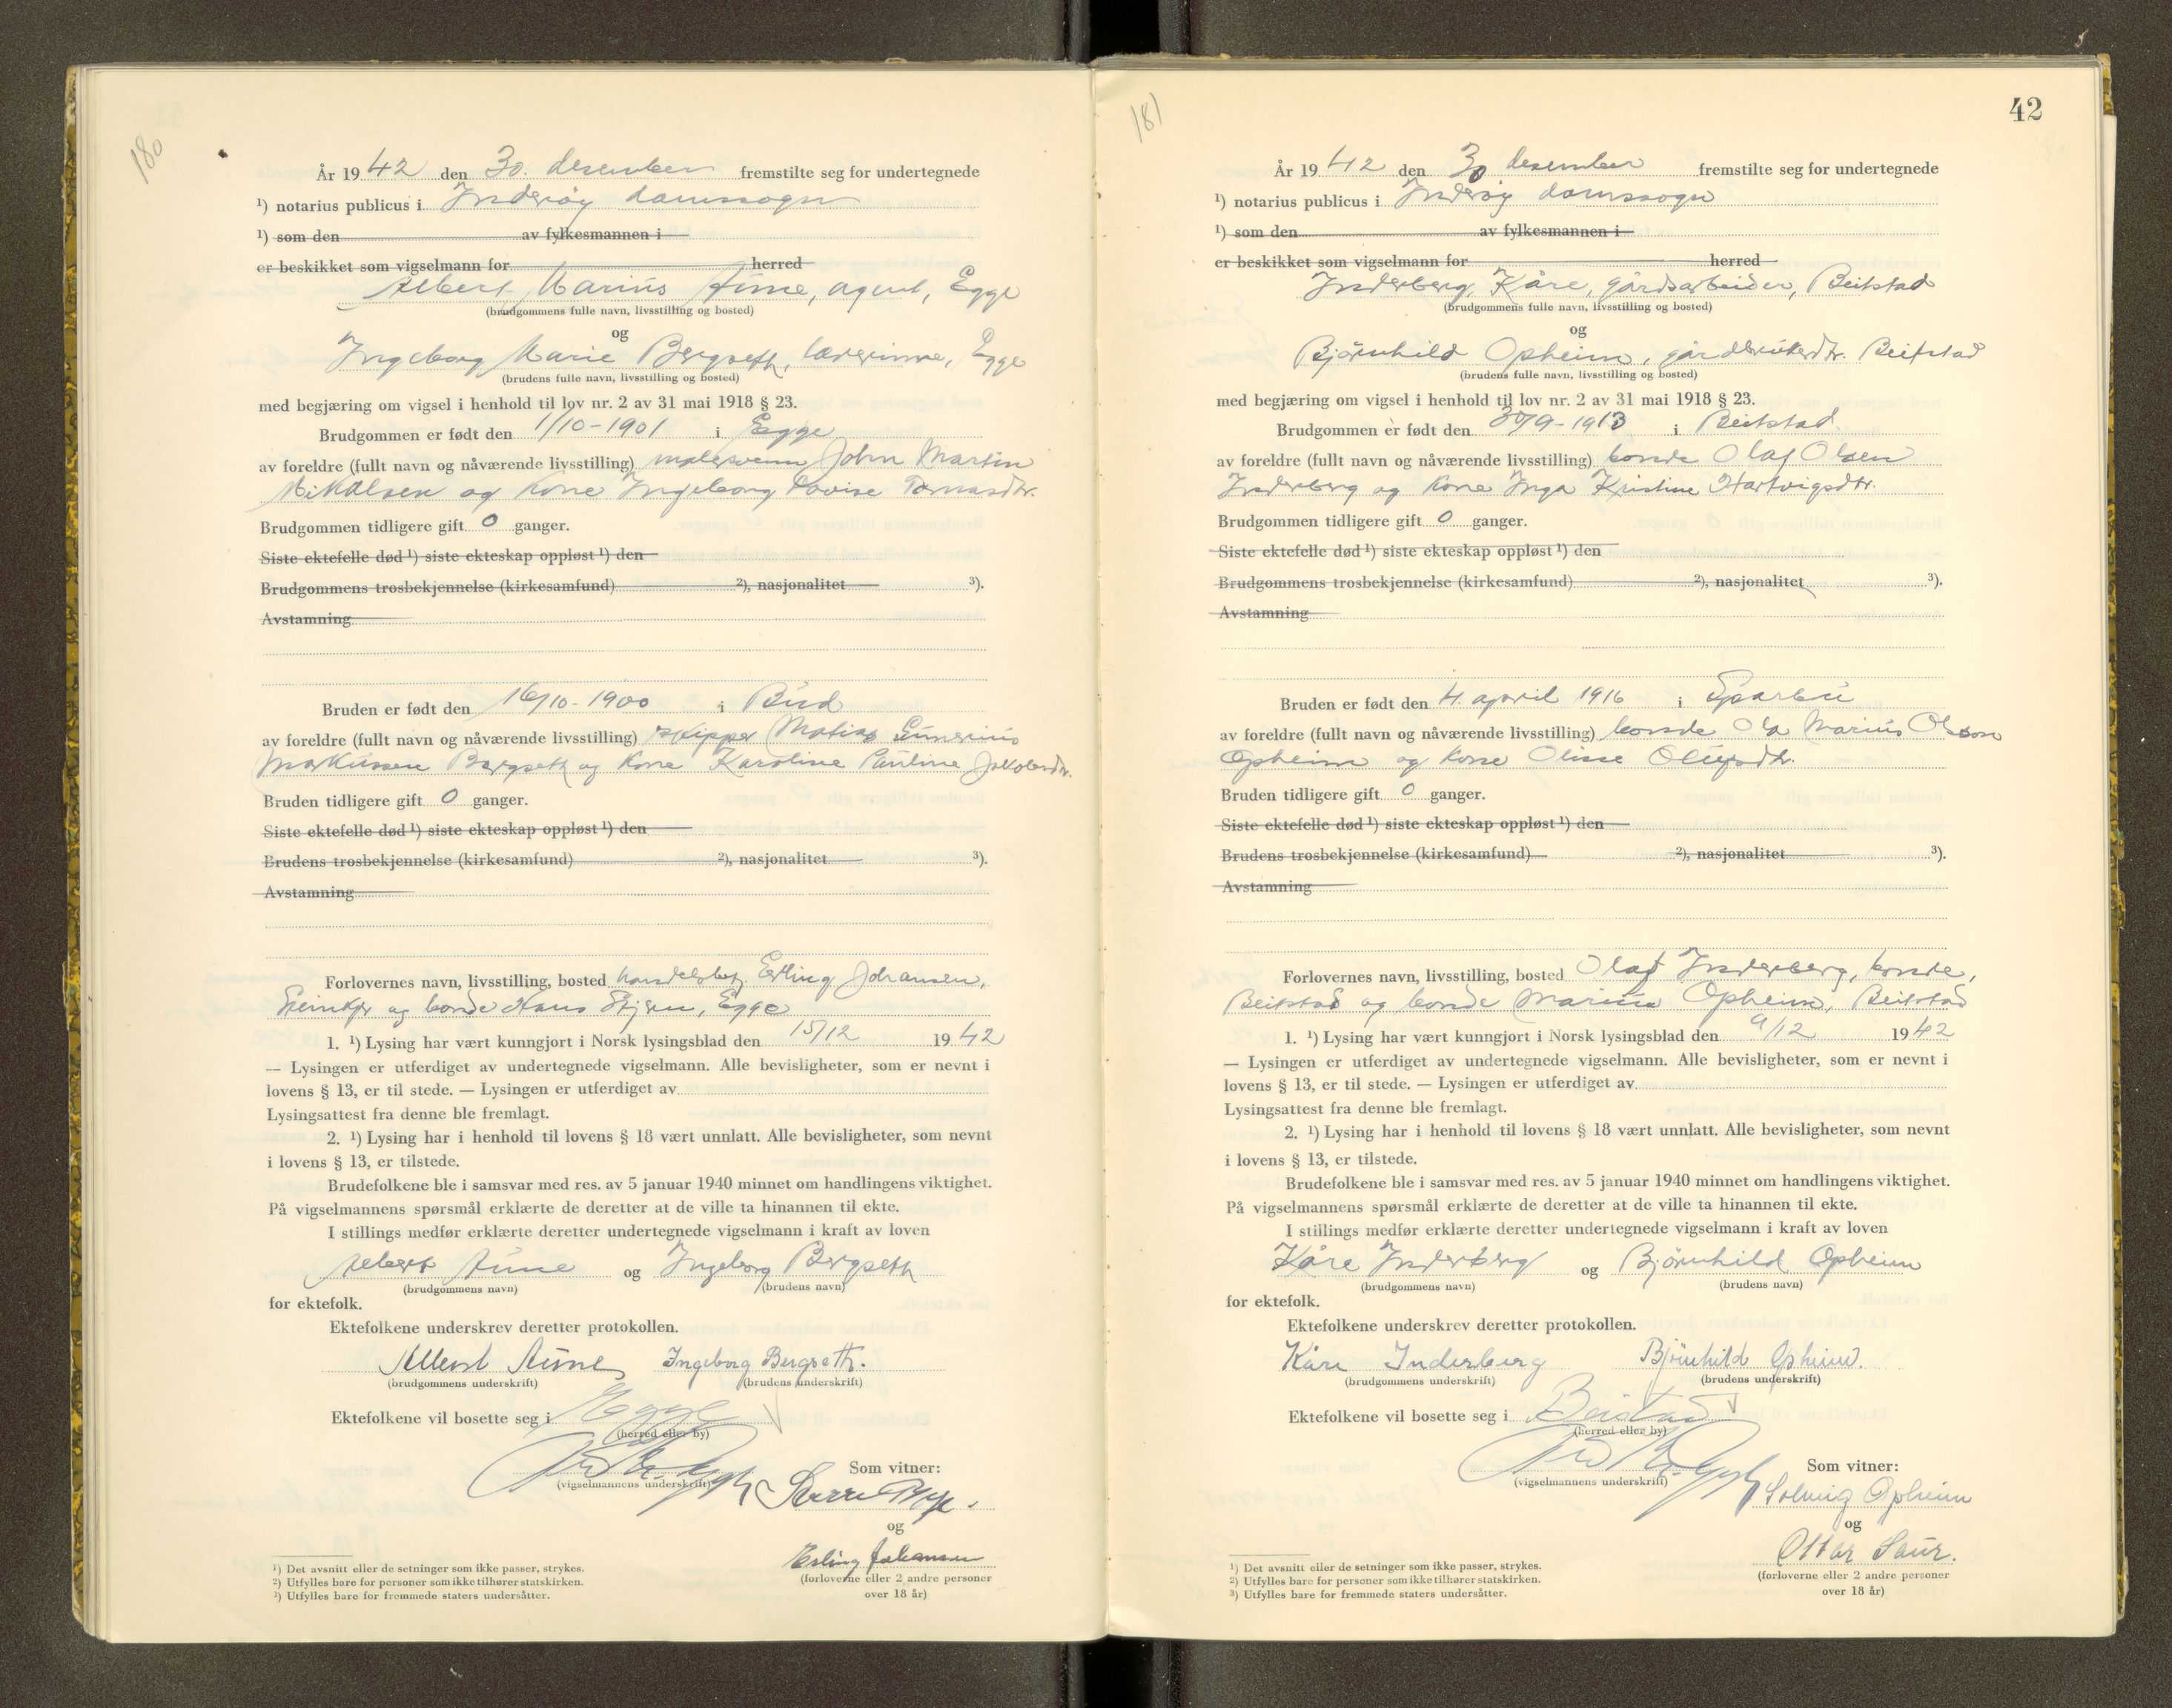 180
År 1942 den 30. desember fremstilte seg for undertegnede
¹) notarius publicus i Inderøy domssogn
¹) som den av fylkesmannen i
er beskikket som vigselmann for herred
Albert Marius Aune, agent, Egge
(brudgommens fulle navn, livsstilling og bosted)
og
Ingeborg Marie Bergseth, lærerinne, Egge
(brudens fulle navn, livsstilling og bosted)
med begjæring om vigsel i henhold til lov nr. 2 av 31 mai 1918 § 23.
Brudgommen er født den 1/10-1901 i Egge
av foreldre (fullt navn og nåværende livsstilling) malersvenn John Martin
Nikolsen og kone Ingeborg Lovise Tomasdtr.
Brudgommen tidligere gift 0 ganger.
Siste ektefelle død ¹) siste ekteskap oppløst ¹) den
Brudgommens trosbekjennelse (kirkesamfund) ²), nasjonalitet ³).
Avstamning
Bruden er født den 16/10-1900 i Bud
av foreldre (fullt navn og nåværende livsstilling) skipper Matias
Markussen Bergseth og kone Karoline Pauline Jakobsdtr.
Bruden tidligere gift 0 ganger.
Siste ektefelle død ¹) siste ekteskap oppløst ¹) den
Brudens trosbekjennelse (kirkesamfund) ²), nasjonalitet ³).
Avstamning
Forlovernes navn, livsstilling, bosted handelsbetj. Erling Johansen,
Steinkjer og bonde Hans Stjern, Egge
1. ¹) Lysing har vært kunngjort i Norsk lysingsblad den 15/12 1942
— Lysingen er utferdiget av undertegnede vigselmann. Alle bevisligheter, som er nevnt i
lovens § 13, er til stede. — Lysingen er utferdiget av
Lysingsattest fra denne ble fremlagt.
2. ¹) Lysing har i henhold til lovens § 18 vært unnlatt. Alle bevisligheter, som nevnt
i lovens § 13, er tilstede.
Brudefolkene ble i samsvar med res. av 5 januar 1940 minnet om handlingens viktighet.
På vigselmannens spørsmål erklærte de deretter at de ville ta hinannen til ekte.
I stillings medfør erklærte deretter undertegnede vigselmann i kraft av loven
Albert Aune og Ingeborg Bergseth
(brudgommens navn) (brudens navn)
for ektefolk.
Ektefolkene underskrev deretter protokollen.
Albert Aune Ingeborg Bergseth.
(brudgommens underskrift) (brudens underskrift)
Ektefolkene vil bosette seg i Egge
(herred eller by)
Som vitner:
(vigselmannens underskrift)
og
Erling Johansen
(forloverne eller 2 andre personer
over 18 år)
¹) Det avsnitt eller de setninger som ikke passer, strykes.
²) Utfylles bare for personer som ikke tilhører statskirken.
³) Utfylles bare for fremmede staters undersåtter.
181
42
År 1942 den 30 desember fremstilte seg for undertegnede
¹) notarius publicus i Inderøy domssogn
¹) som den av fylkesmannen i
er beskikket som vigselmann for herred
Inderberg, Kåre, gårdsarbeider, Beitstad
(brudgommens fulle navn, livsstilling og bosted)
og
Bjørnhild Opheim, gårdbrukerdtr. Beitstad
(brudens fulle navn, livsstilling og bosted)
med begjæring om vigsel i henhold til lov nr. 2 av 31 mai 1918 § 23.
Brudgommen er født den 30/9-1913 i Beitstad
av foreldre (fullt navn og nåværende livsstilling) bonde Olaf Olsen
Inderberg og kone Inga Kristine Hartvigsdtr.
Brudgommen tidligere gift 0 ganger.
Siste ektefelle død ¹) siste ekteskap oppløst ¹) den
Brudgommens trosbekjennelse (kirkesamfund) ²), nasjonalitet ³).
Avstamning
Bruden er født den 4. april 1916 i Sparbu
av foreldre (fullt navn og nåværende livsstilling) bonde Ola Marius Olsson
Opheim og kone Olise Olufsdtr.
Bruden tidligere gift 0 ganger.
Siste ektefelle død ¹) siste ekteskap oppløst ¹) den
Brudens trosbekjennelse (kirkesamfund) ²), nasjonalitet ³).
Avstamning
Forlovernes navn, livsstilling, bosted Olaf Inderberg, bonde,
Beitstad og bonde Marius Opheim, Beitstad
1. ¹) Lysing har vært kunngjort i Norsk lysingsblad den 9/12 1942
— Lysingen er utferdiget av undertegnede vigselmann. Alle bevisligheter, som er nevnt i
lovens § 13, er til stede. — Lysingen er utferdiget av
Lysingsattest fra denne ble fremlagt.
2. ¹) Lysing har i henhold til lovens § 18 vært unnlatt. Alle bevisligheter, som nevnt
i lovens § 13, er tilstede.
Brudefolkene ble i samsvar med res. av 5 januar 1940 minnet om handlingens viktighet.
På vigselmannens spørsmål erklærte de deretter at de ville ta hinannen til ekte.
I stillings medfør erklærte deretter undertegnede vigselmann i kraft av loven
Kåre Inderberg og Bjørnhild Opheim
(brudgommens navn) (brudens navn)
for ektefolk.
Ektefolkene underskrev deretter protokollen.
Kåre Inderberg Bjørnhild Opheim.
(brudgommens underskrift) (brudens underskrift)
Ektefolkene vil bosette seg i Beistad
(herred eller by)
Som vitner:
(vigselmannens underskrift)
Solveig Opheim
og
Ottar Saur.
(forloverne eller 2 andre personer
over 18 år)
¹) Det avsnitt eller de setninger som ikke passer, strykes.
²) Utfylles bare for personer som ikke tilhører statskirken.
³) Utfylles bare for fremmede staters undersåtter.